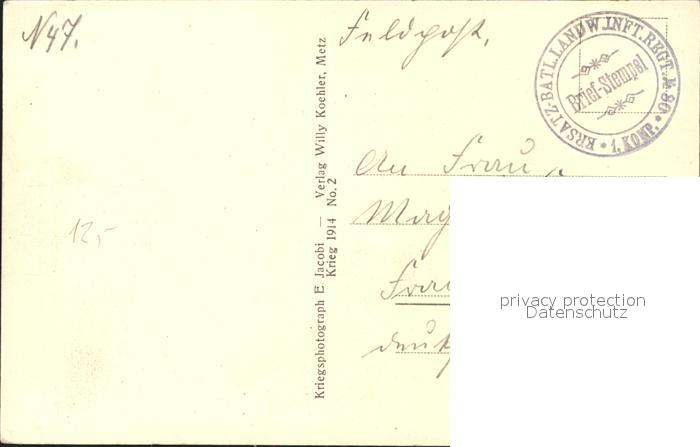 N47.
Feldpost.
ERSATZ-BATL. LANDW. INFT. REGT. № 80.
Brief-Stempel
* 1. KOMP. *
An Frau
12,-
Kriegsphotograph E. Jacobi — Verlag Willy Koehler, Metz
Krieg 1914 No. 2
privacy protection
Datenschutz